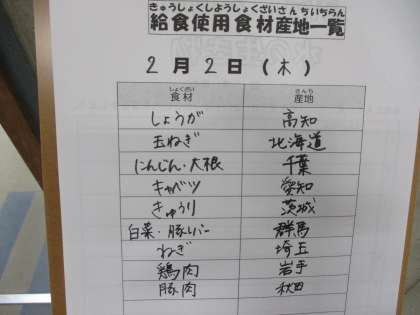 きゅうしょくしようしょくざいさんちいちらん
給食使用食材産地一覧
2月2日(木)
しょくざい さんち
食材 産地
しょうが 高知
玉ねぎ 北海道
にんじん・大根 千葉
キャベツ 愛知
きゅうり 茨城
白菜・豚レバー 群馬
ねぎ 埼玉
鶏肉 岩手
豚肉 秋田